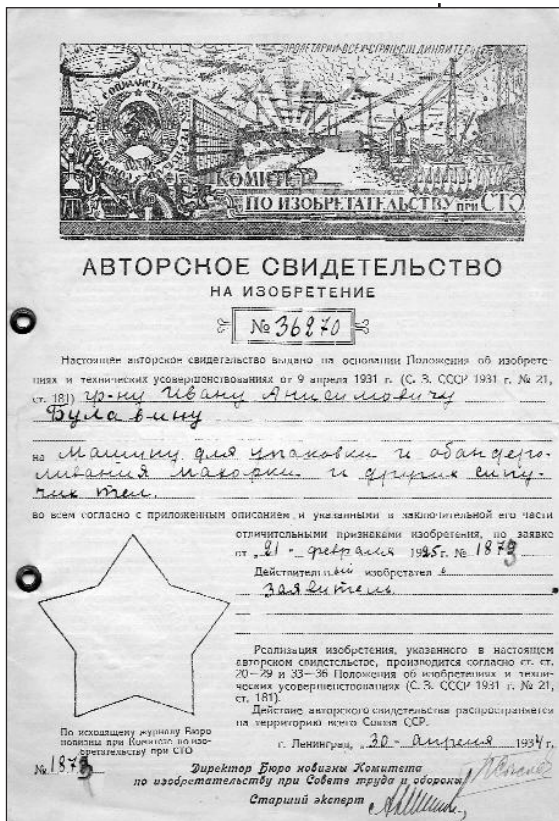 ПРОЛЕТАРИИ ВСЕХ СТРАН, СОЕДИНЯЙТЕСЬ
КОМИТЕТ
ПО ИЗОБРЕТАТЕЛЬСТВУ ПРИ СТО
АВТОРСКОЕ СВИДЕТЕЛЬСТВО
НА ИЗОБРЕТЕНИЕ
№ 36270
Настоящее авторское свидетельство выдано на основании Положения об изобрете-
ниях и технических усовершенствованиях от 9 апреля 1931 г. (С. З. СССР 1931 г. № 21,
ст. 181) гр-ну Ивану Анисимовичу
Булавину
на Машину для упаковки и обандеро-
ливания махорки и других сыпу-
чих тел.
во всем согласно с приложенным описанием и указанными в заключительной его части
отличительными признаками изобретения, по заявке
от „21 - февраля 1925 г. № 1873
Действительный изобретатель
заявитель.
Реализация изобретения, указанного в настоящем
авторском свидетельстве, производится согласно ст. ст.
20—29 и 33—36 Положения об изобретениях и техни-
ческих усовершенствованиях (С. З. СССР 1931 г. № 21,
ст. 181).
Действие авторского свидетельства распространяется
на территорию всего Союза ССР.
г. Ленинград, „30 - апреля 1934 г.
По исходящему журналу Бюро
новизны при Комитете по изо-
бретательству при СТО
№ 1873
Директор Бюро новизны Комитета
по изобретательству при Совете труда и обороны
Старший эксперт